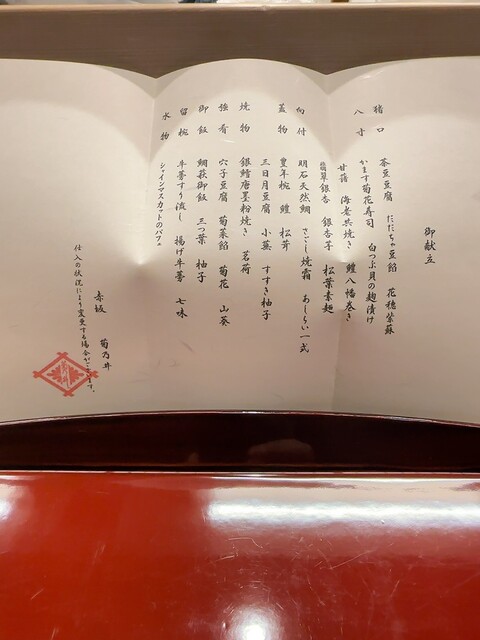 御献立
猪口 茶豆豆腐 だだちゃ豆餡 花穂紫蘇
八寸 かます菊花寿司 白つぶ貝の麹漬け
甘藷 海老共焼き 鱧八幡巻き
翡翠銀杏 銀杏芋 松葉素麺
向付 明石天然鯛 さごし焼霜 あしらい一式
蓋物 豊年椀 鱧 松茸
三日月豆腐 小蕪 すすき柚子
焼物 銀鱈唐墨粉焼き 茗荷
強肴 穴子豆腐 菊菜餡 菊花 山葵
御飯 鯛萩御飯 三つ葉 柚子
留椀 牛蒡すり流し 揚げ牛蒡 七味
水物 シャインマスカットのパフェ
赤坂 菊乃井
仕入の状況により変更する場合がございます。